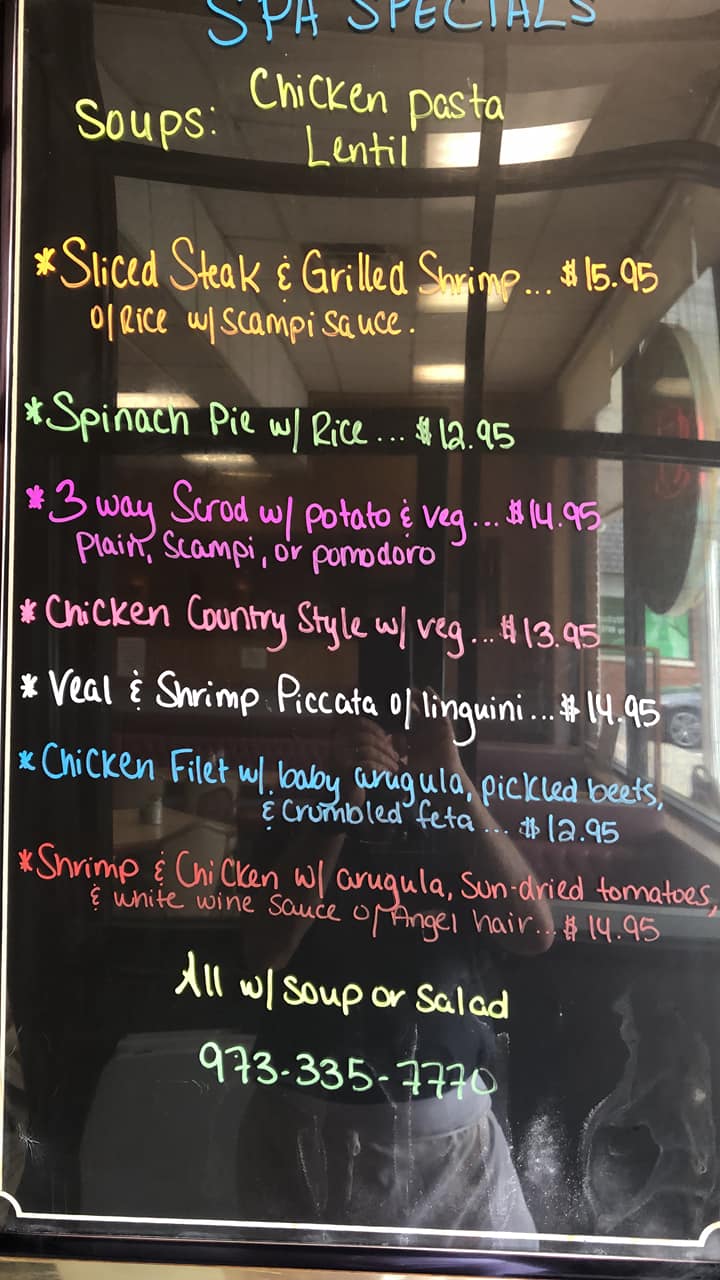 SPA SPECIALS
Soups: Chicken pasta
Lentil
*Sliced Steak & Grilled Shrimp... $15.95
o/Rice w/ scampi sauce.
*Spinach Pie w/ Rice... $12.95
*3 way Scrod w/ potato & veg... $14.95
Plain, Scampi, or pomodoro
*Chicken Country Style w/ veg... $13.95
*Veal & Shrimp Piccata o/ linguini... $14.95
*Chicken Filet w/ baby arugula, pickled beets,
& crumbled feta ... $12.95
*Shrimp & Chicken w/ arugula, Sun-dried tomatoes,
& white wine sauce o/ Angel hair... $14.95
All w/ soup or salad
973-335-7770